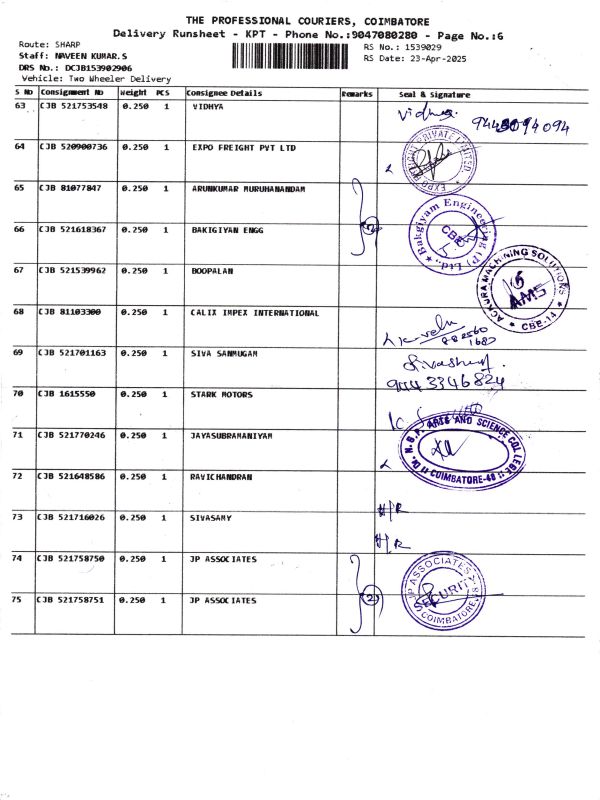 THE PROFESSIONAL COURIERS, COIMBATORE
Delivery Runsheet - KPT - Phone No.:9047080280 - Page No.:6
Route: SHARP
RS No.: 1539029
Staff: NAVEEN KUMAR.S
RS Date: 23-Apr-2025
DRS No.: DCJB153902906
Vehicle: Two Wheeler Delivery
S No Consignment No Weight PCS Consignee Details Remarks Seal & Signature
63 CJB 521753548 0.250 1 VIDHYA
64 CJB 520900736 0.250 1 EXPO FREIGHT PVT LTD
65 CJB 81077847 0.250 1 ARUNKUMAR MURUHANANDAM
Bakgiyam Engineering (P) Ltd., CBE
66 CJB 521618367 0.250 1 BAKIGIYAN ENGG
67 CJB 521539962 0.250 1 BOOPALAN
ACKURA MACHINING SOLUTIONS AMS CBE-14
68 CJB 81103300 0.250 1 CALIX IMPEX INTERNATIONAL
69 CJB 521701163 0.250 1 SIVA SANMUGAM
70 CJB 1615550 0.250 1 STARK MOTORS
71 CJB 521770246 0.250 1 JAYASUBRAMANIYAM
Dr. N.G.P. ARTS AND SCIENCE COLLEGE COIMBATORE-48
72 CJB 521648586 0.250 1 RAVICHANDRAN
H/R
73 CJB 521716026 0.250 1 SIVASAMY
H/R
74 CJB 521758750 0.250 1 JP ASSOCIATES
(2)
JP ASSOCIATES SECURITY COIMBATORE
75 CJB 521758751 0.250 1 JP ASSOCIATES